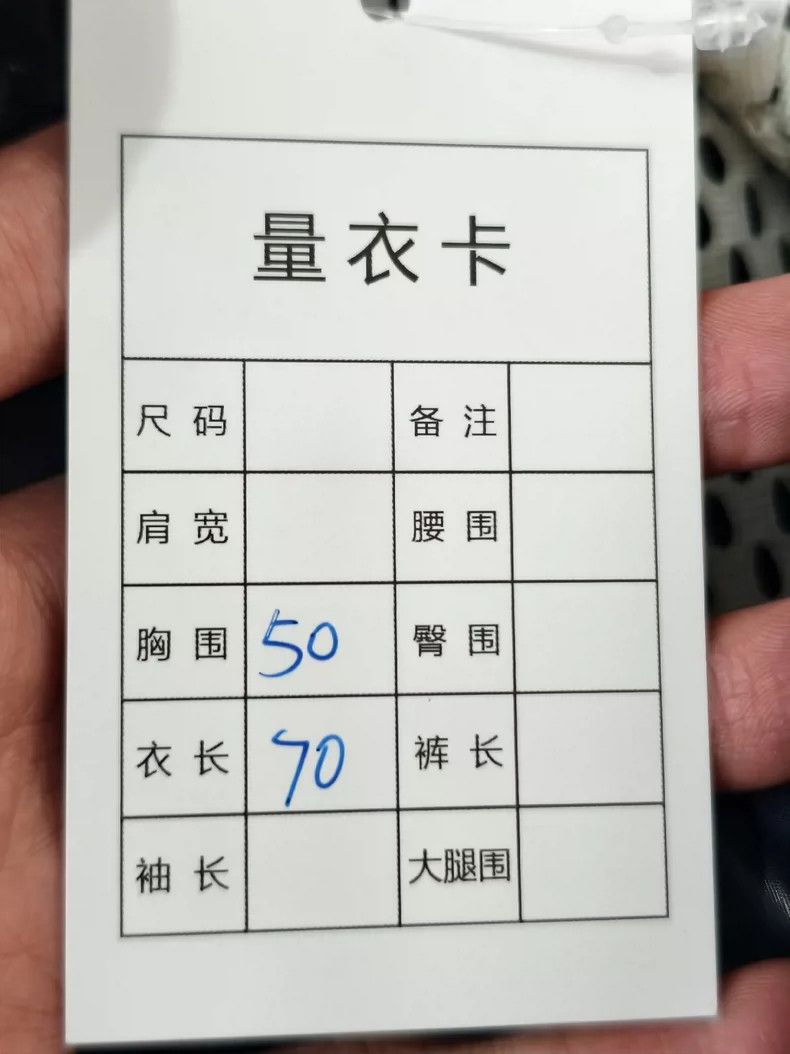 量衣卡
尺码 备注
肩宽 腰围
胸围 50 臀围
衣长 70 裤长
袖长 大腿围